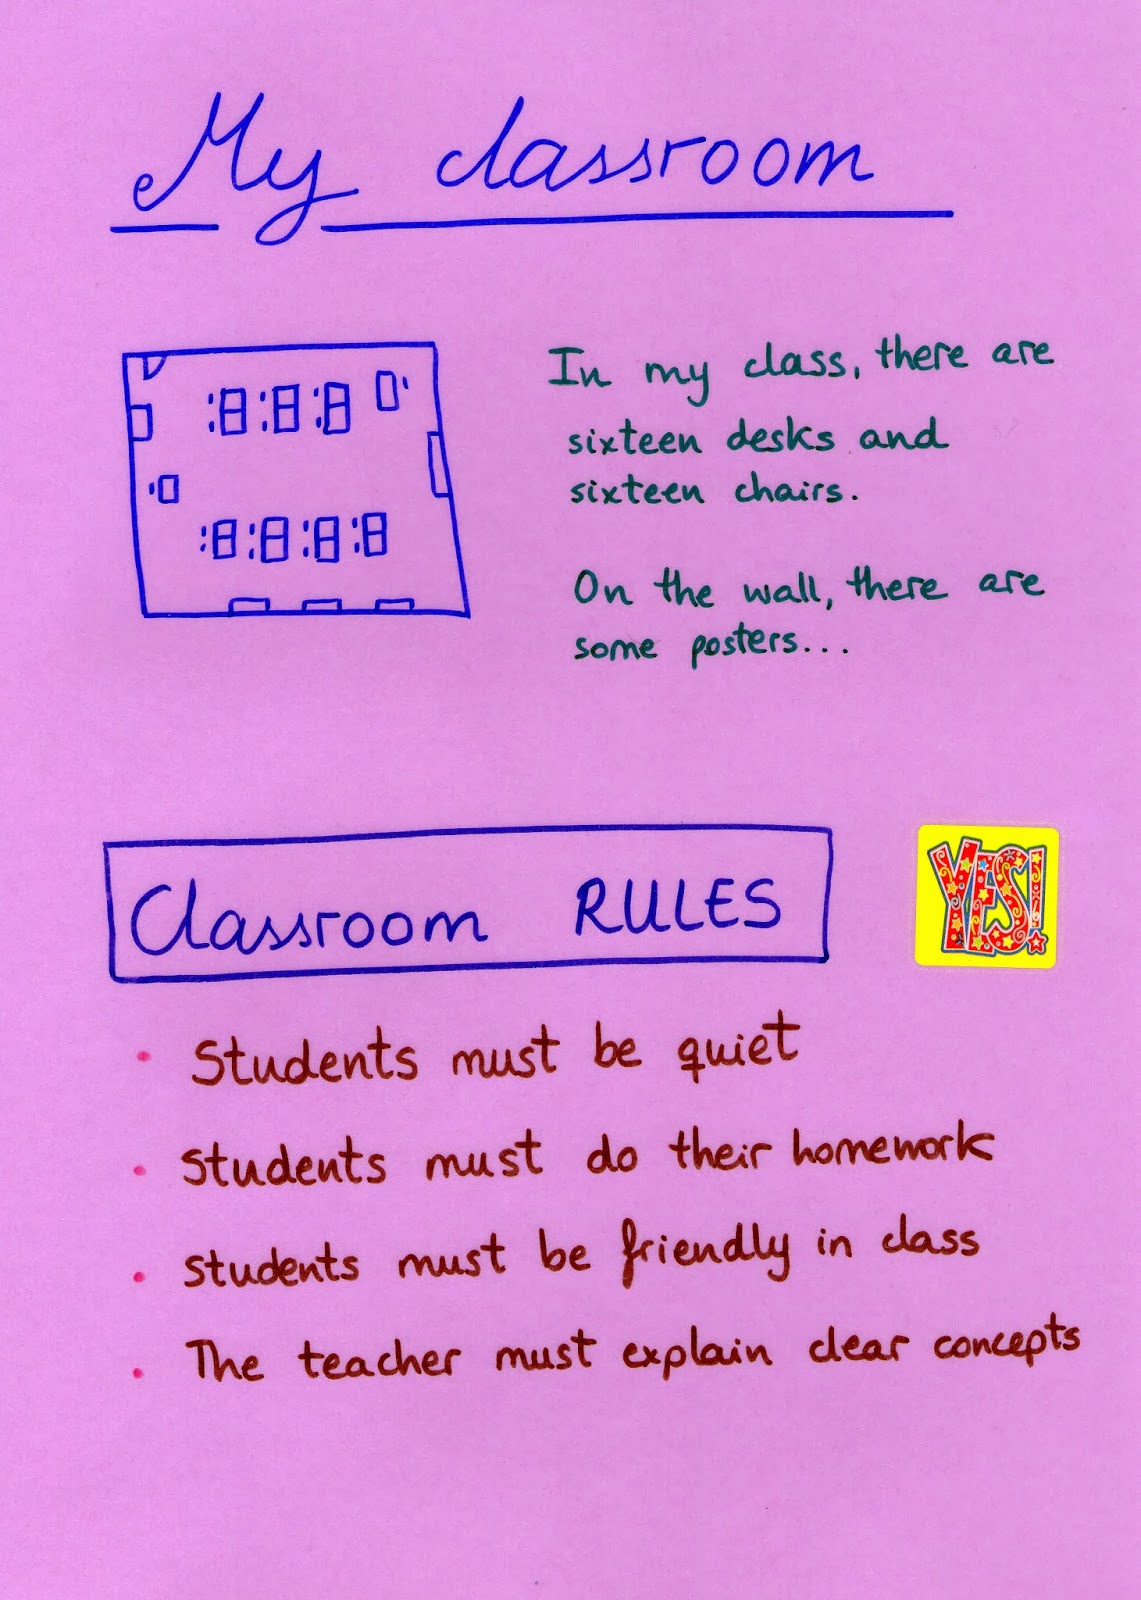 My classroom
In my class, there are
sixteen desks and
sixteen chairs.
On the wall, there are
some posters...
Classroom RULES
YES!
• Students must be quiet
• Students must do their homework
• Students must be friendly in class
• The teacher must explain clear concepts